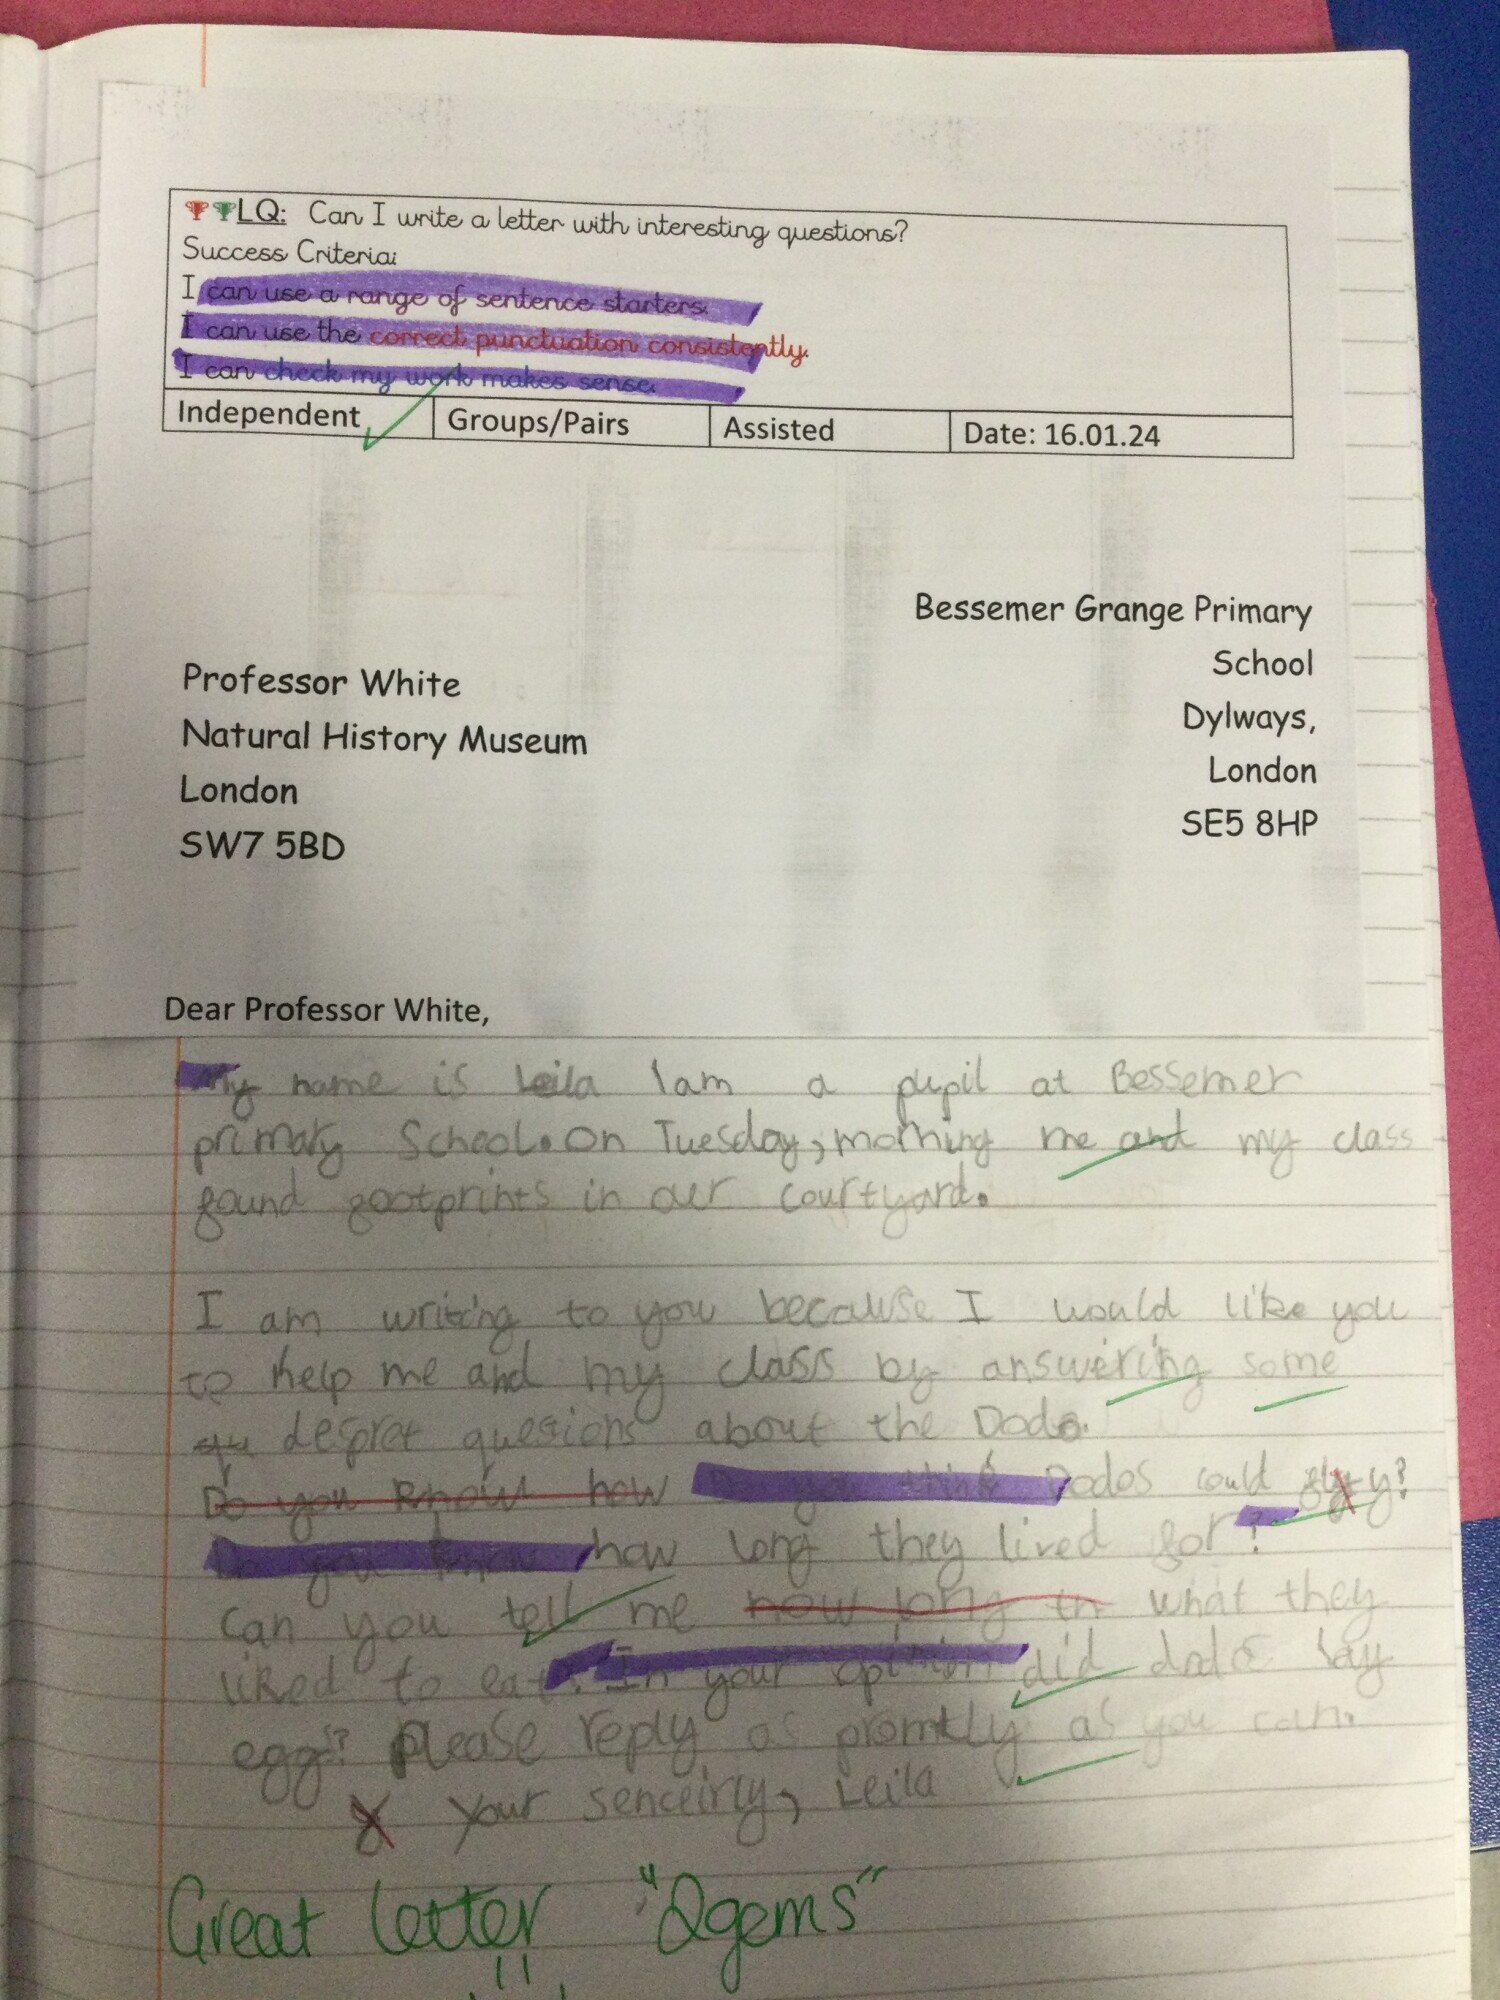 LQ: Can I write a letter with interesting questions?
Success Criteria:
I can use a range of sentence starters.
I can use the correct punctuation consistently.
I can check my work makes sense.
Independent Groups/Pairs Assisted Date: 16.01.24
Bessemer Grange Primary
School
Dylways,
London
SE5 8HP
Professor White
Natural History Museum
London
SW7 5BD
Dear Professor White,
My name is Leila I am a pupil at Bessemer
primary School. On Tuesday, morning me and my class
found footprints in our courtyard.
I am writing to you because I would like you
to help me and my class by answering some
despret quesions about the Dodo.
Do you know how Do you think Dodos could fly?
Do you know how long they lived for?
can you tell me how long th what they
liked to eat? In your opinion did dodo lay
egg? Please reply as promtly as you can.
Your senceirly, Leila
Great letter "2gems"